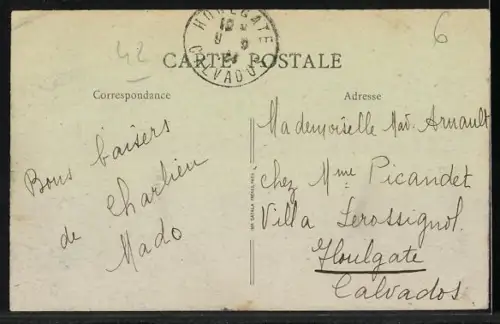 42
6
HOULGATE
CALVADOS
CARTE POSTALE
Correspondance
Adresse
Bons baisers
de Charlieu
Mado
Mademoiselle Mad. Arnault
chez Mme Picandet
Villa Lerossignol
Houlgate
Calvados